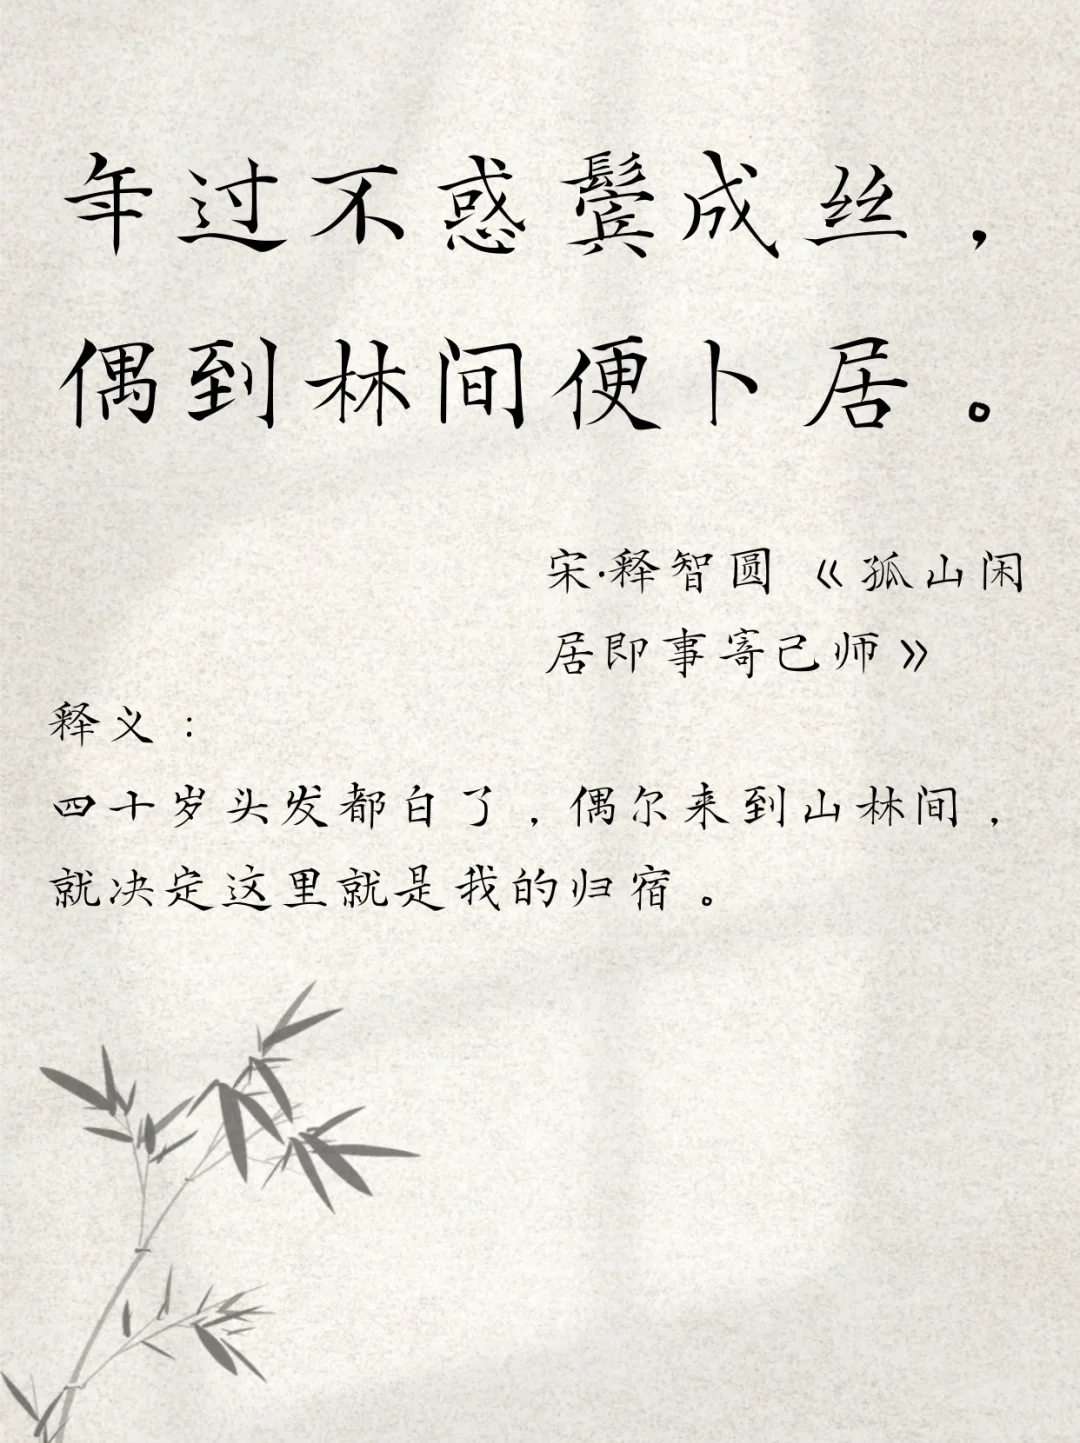 年过不惑鬓成丝，
偶到林间便卜居。
宋·释智圆 《孤山闲
居即事寄己师》
释义：
四十岁头发都白了，偶尔来到山林间，
就决定这里就是我的归宿。